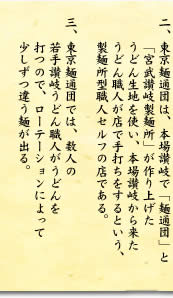 二、東京麺通団は、本場讃岐で「麺通団」と
「宮武讃岐製麺所」が作り上げた
うどん生地を使い、本場讃岐から来た
うどん職人が店で手打ちをするという、
製麺所型職人セルフの店である。
三、東京麺通団では、数人の
若手讃岐うどん職人がうどんを
打つので、ローテーションによって
少しずつ違う麺が出る。